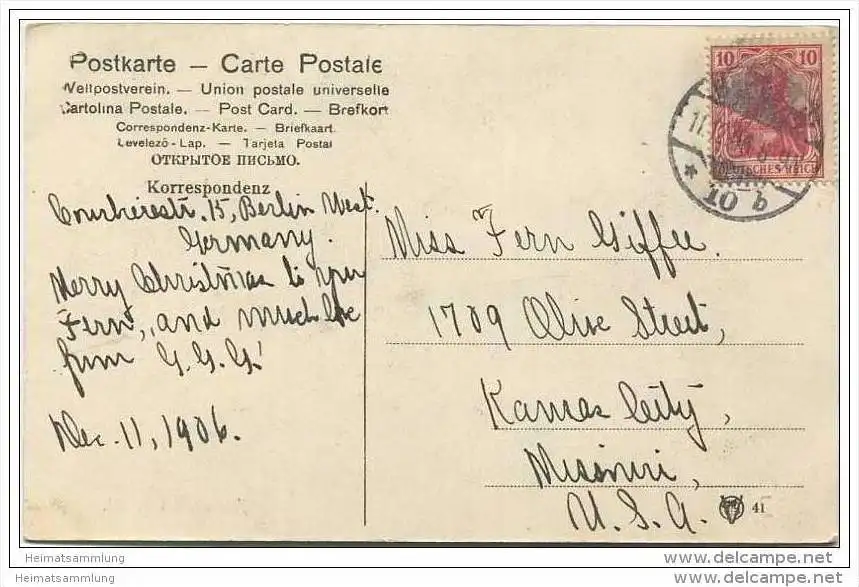 Postkarte — Carte Postale
Weltpostverein. — Union postale universelle
Cartolina Postale. — Post Card. — Brefkort
Correspondenz-Karte. — Briefkaart.
Levelező-Lap. — Tarjeta Postal
ОТКРЫТОЕ ПИСЬМО.
Korrespondenz
15, Berlin West.
Germany.
Merry Christmas to you
Fern, and much love
from G. G. G.!
Dec. 11, 1906.
10 10
DEUTSCHES REICH
* 10 b
Miss Fern Giffee.
1709 Olive Street,
Kansas City,
Missouri,
U. S. A.
41
Heimatsammlung
Heimatsammlung
www.delcampe.net
www.delcampe.net